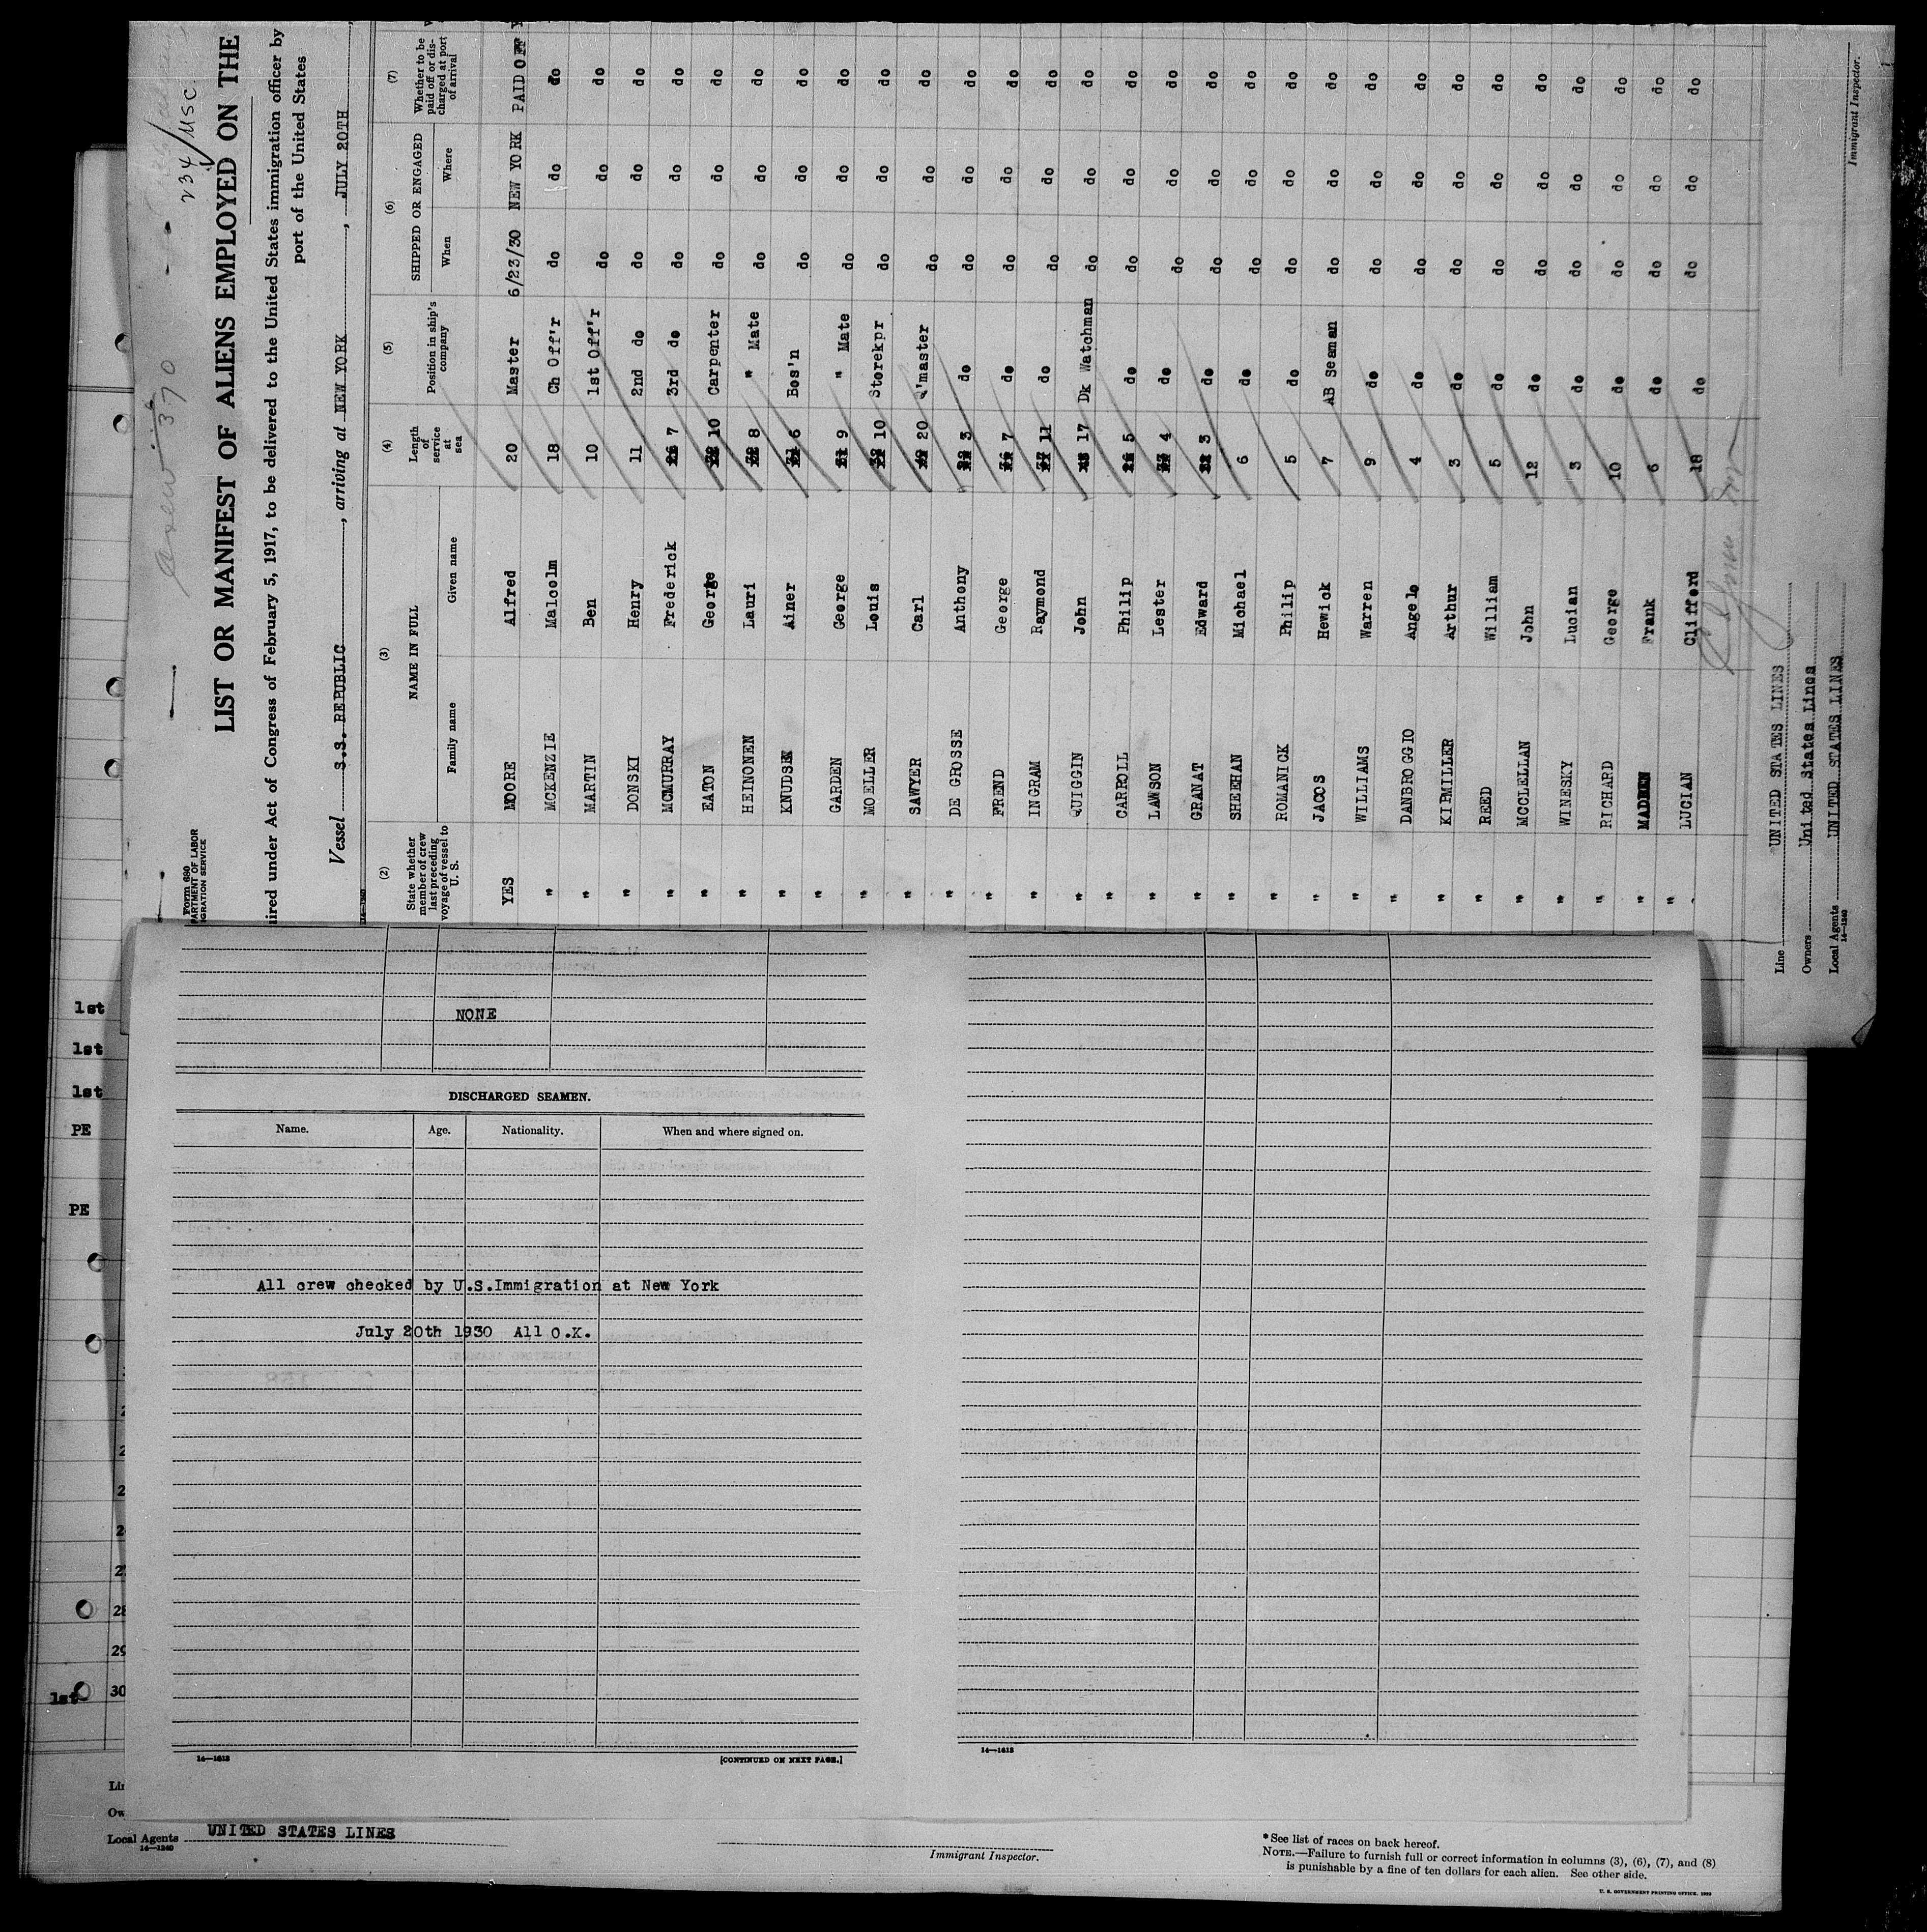 234/USC
crew 370
LIST OR MANIFEST OF ALIENS EMPLOYED ON THE
Form 680
PARTMENT OF LABOR
IGRATION SERVICE
ired under Act of Congress of February 5, 1917, to be delivered to the United States immigration officer by
port of the United States
Vessel S.S. REPUBLIC, arriving at NEW YORK, JULY 20TH,
14—1240
(2) (3) (4) (5) (6) (7)
State whether member of crew last preceding voyage of vessel to U. S. NAME IN FULL Length of service at sea Position in ship's company SHIPPED OR ENGAGED Whether to be paid off or discharged at port of arrival
Family name Given name When Where
YES MOORE Alfred 20 Master 6/23/30 NEW YORK PAID OFF
" MCKENZIE Malcolm 18 Ch Off'r do do do
" MARTIN Ben 10 1st Off'r do do do
" DONSKI Henry 11 2nd do do do do
" MCMURRAY Frederick 7 3rd do do do do
" EATON George 10 Carpenter do do do
" HEINONEN Lauri 8 " Mate do do do
" KNUDSEN Ainer 6 Bos'n do do do
" GARDEN George 9 " Mate do do do
" MOELLER Louis 10 Storekpr do do do
" SAWYER Carl 20 Q'master do do do
" DE GROSSE Anthony 3 do do do do
" FREND George 7 do do do do
" INGRAM Raymond 11 do do do do
" QUIGGIN John 17 Dk Watchman do do do
" CARROLL Philip 5 do do do do
" LAWSON Lester 4 do do do do
" GRANAT Edward 3 do do do do
" SHEEHAN Michael 6 do do do do
" ROMANICK Philip 5 do do do do
" JACOS Hewick 7 AB Seaman do do do
" WILLIAMS Warren 9 do do do do
" DANBROGGIO Angelo 4 do do do do
" KIPMILLER Arthur 3 do do do do
" REED William 5 do do do do
" MCCLELLAN John 12 do do do do
" WINESKY Lucian 3 do do do do
" RICHARD George 10 do do do do
" MADDEN Frank 6 do do do do
" LUCIAN Clifford 18 do do do do
Line UNITED STATES LINES
Owners United States Lines
Local Agents UNITED STATES LINES
14—1240
Immigrant Inspector.
1st
1st
1st
PE
PE
1st
28
29
30
NONE
DISCHARGED SEAMEN.
Name. Age. Nationality. When and where signed on.
All crew checked by U.S.Immigration at New York
July 20th 1930 All O.K.
14—1613
[CONTINUED ON NEXT PAGE.]
14—1613
Local Agents UNITED STATES LINES
14—1240
Immigrant Inspector.
*See list of races on back hereof.
NOTE.—Failure to furnish full or correct information in columns (3), (6), (7), and (8)
is punishable by a fine of ten dollars for each alien. See other side.
U. S. GOVERNMENT PRINTING OFFICE. 1929